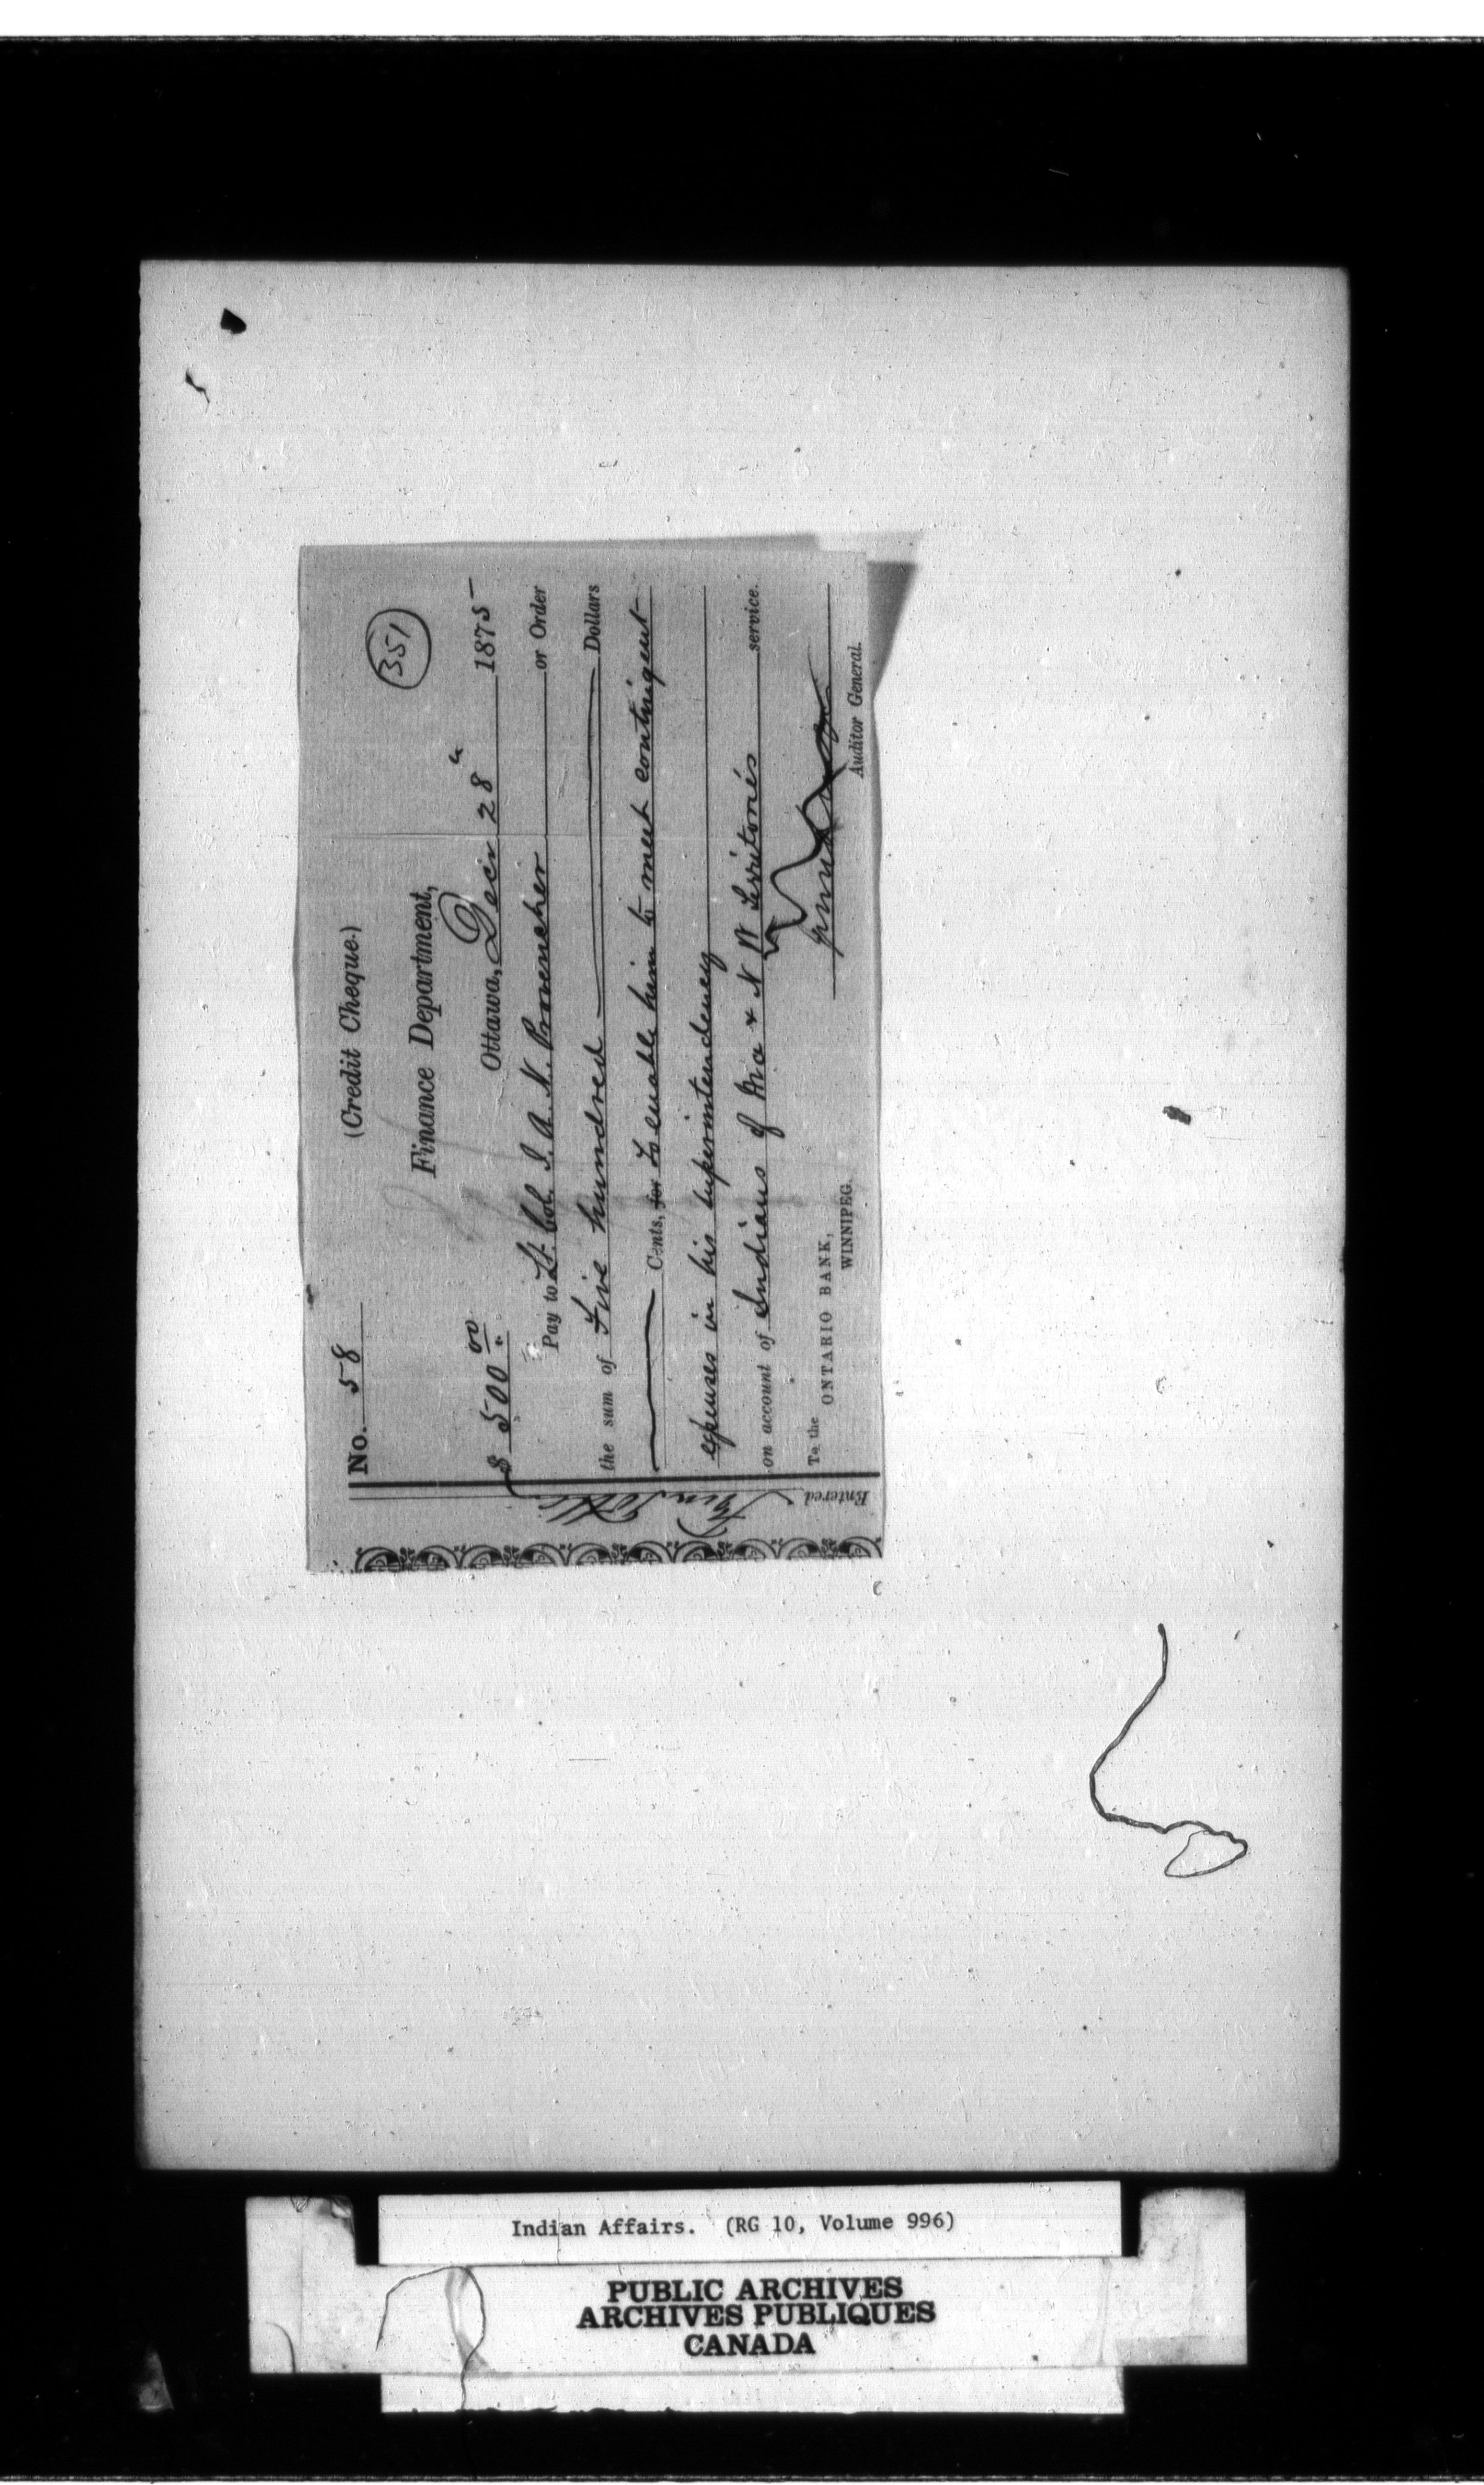 No. 58 (Credit Cheque.)
351
Finance Department,
$ 500.00 Ottawa, Decr 28" 1875
Pay to Lt. Col. J. A. N. Provencher or Order
the sum of Five hundred Dollars
Cents, for to enable him to meet contingent
expenses in his Superintendency
on account of Indians of Ma & N W Territories service.
To the
ONTARIO BANK,
WINNIPEG.
Auditor General.
Entered
Indian Affairs. (RG 10, Volume 996)
PUBLIC ARCHIVES
ARCHIVES PUBLIQUES
CANADA